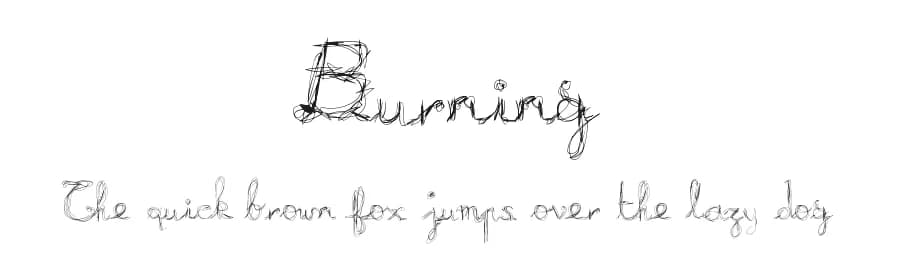 Burning
The quick brown fox jumps over the lazy dog